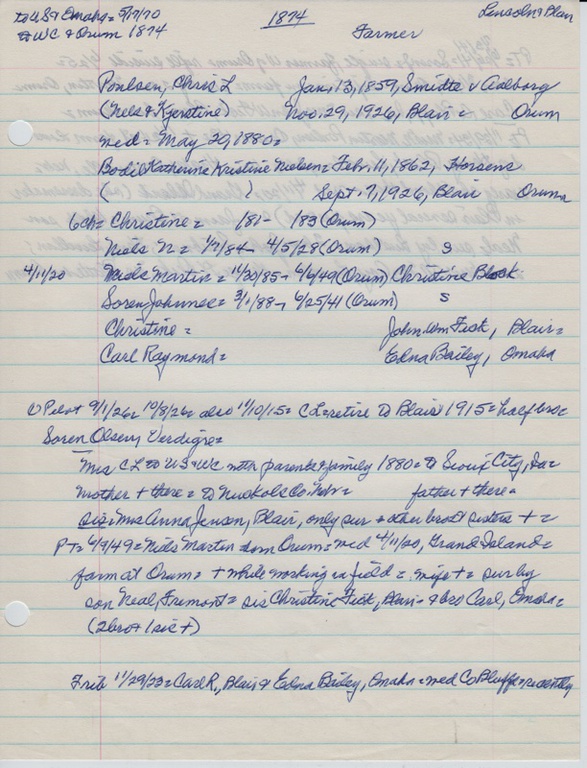 to US & Omaha = 5/17/70 1874 Lincoln & Plan
to WC & Orum 1874 Farmer
Poulsen, Chris L Jan, 13, 1859, Smidts v Aalborg
(Nels & Kjerstine) Nov. 29, 1926, Blair = Orum
med = May 20, 1880 =
Bodil Katherine Kristine Nielsen = Febr. 11, 1862, Horsens
( ) Sept. 7, 1926, Blair Orum
6 ch = Christine = /81 - /83 (Orum)
Niels N = 1/7/84 - 4/5/28 (Orum) S
4/11/20 Niels Martin = 11/20/85 - 6/6/49 (Orum) Christine Block
Soren Johannes = 3/1/88 - 6/25/41 (Orum) S
Christine = John Wm Fick, Blair =
Carl Raymond = Edna Bailey, Omaha
Pilot 9/1/26 = 10/8/26 = also 11/10/15 = CL = retire to Blair 1915 = half bro =
Soren Olsen, Verdigre =
Mrs CL to US & WC with parents & family 1880 = to Sioux City, Ia =
mother + there = to Nuckols Co. Nebr = father + there =
sis = Mrs Anna Jensen, Blair, only sur & other bro & sisters + =
PT = 6/9/49 = Niels Martin = born Orum = med 4/11/20, Grand Island =
farm at Orum = + while working in field = wife + = sur by
son Neal, Fremont = sis Christine Fick, Blair = & bro Carl, Omaha =
(2 bro & 1 sis +)
Trib 11/29/23 = Carl R., Blair & Edna Bailey, Omaha = med Co Bluffs = recently